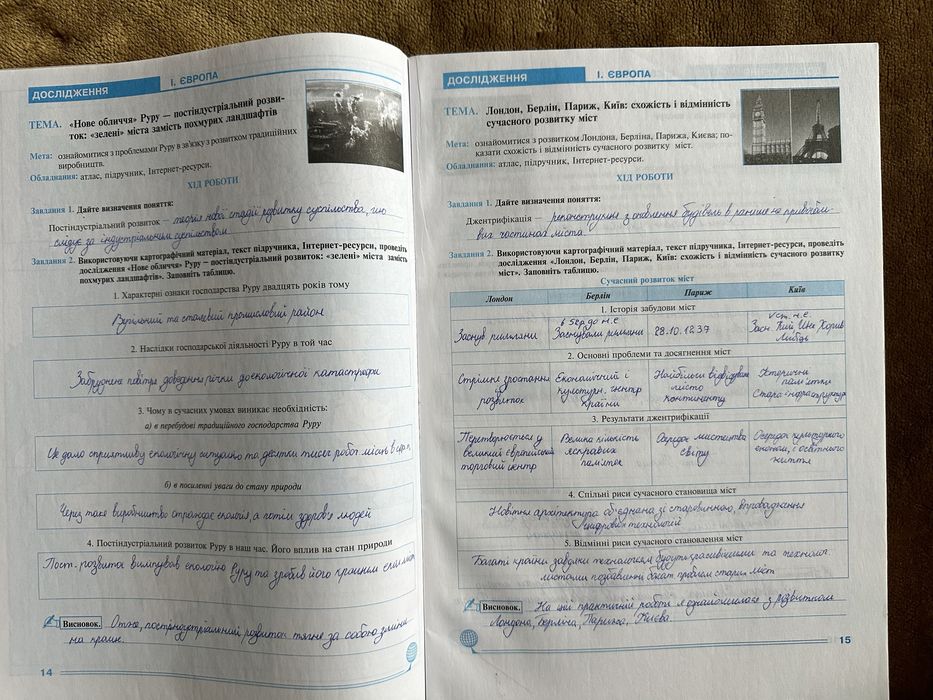 ДОСЛІДЖЕННЯ
І. ЄВРОПА
ТЕМА. «Нове обличчя» Руру — постіндустріальний розви-
ток: «зелені» міста замість похмурих ландшафтів
Мета: ознайомитися з проблемами Руру в зв'язку з розвитком традиційних
виробництв.
Обладнання: атлас, підручник, Інтернет-ресурси.
ХІД РОБОТИ
Завдання 1. Дайте визначення поняття:
Постіндустріальний розвиток — теорія нової стадії розвитку суспільства, що
слідує за індустріальним суспільством
Завдання 2. Використовуючи картографічний матеріал, текст підручника, Інтернет-ресурси, проведіть
дослідження «Нове обличчя» Руру — постіндустріальний розвиток: «зелені» міста замість
похмурих ландшафтів». Заповніть таблицю.
1. Характерні ознаки господарства Руру двадцять років тому
Вугільний та сталевий промисловий район
2. Наслідки господарської діяльності Руру в той час
Забруднене повітря доведення річки до екологічної катастрофи
3. Чому в сучасних умовах виникає необхідність:
а) в перебудові традиційного господарства Руру
Це дало сприятливу екологічну ситуацію та десятки тисяч робоч. місць в
б) в посиленні уваги до стану природи
Через таке виробництво страждає екологія, а потім здоров'я людей
4. Постіндустріальний розвиток Руру в наш час. Його вплив на стан природи
Пост. розвиток екологію Руру та зробив його кращим
Висновок. Отже, постіндустріальний розвиток тягне за собою зміни
на краще.
14
ДОСЛІДЖЕННЯ
І. ЄВРОПА
ТЕМА. Лондон, Берлін, Париж, Київ: схожість і відмінність
сучасного розвитку міст
Мета: ознайомитися з розвитком Лондона, Берліна, Парижа, Києва; по-
казати схожість і відмінність сучасного розвитку міст.
Обладнання: атлас, підручник, Інтернет-ресурси.
ХІД РОБОТИ
Завдання 1. Дайте визначення поняття:
Джентрифікація — реконструкція з оновлення будівель в раніше
частинах міста.
Завдання 2. Використовуючи картографічний матеріал, текст підручника, Інтернет-ресурси, проведіть
дослідження «Лондон, Берлін, Париж, Київ: схожість і відмінність сучасного розвитку
міст». Заповніть таблицю.
Сучасний розвиток міст
Лондон Берлін Париж Київ
1. Історія забудови міст
Заснув. римляни Заснували римляни 28.10.1237 V ст. н.е. Засн. Кий, Щек Хорив Либідь
2. Основні проблеми та досягнення міст
Стрімке зростання і розвиток Економічний і культурн. центр країни Найбільш відвідуване місто континенту Історичні пам'ятки Стара інфраструктура
3. Результати джентрифікації
Перетворюється у великий європейський торговий центр Велика кількість яскравих пам'яток Осередок мистецтва світу Осередок культурного економ. і освітнього життя
4. Спільні риси сучасного становища міст
Новітня архітектура об'єднана зі старовинною, впровадження
цифрових технологій
5. Відмінні риси сучасного становлення міст
Багаті країни завдяки технологіям будуть красивішими та технолог.
містами позбавлені багат. проблем старих міст
Висновок. На цій практичній роботі я ознайомилася з розвитком
Лондона, Берліна, Парижа, Києва.
15